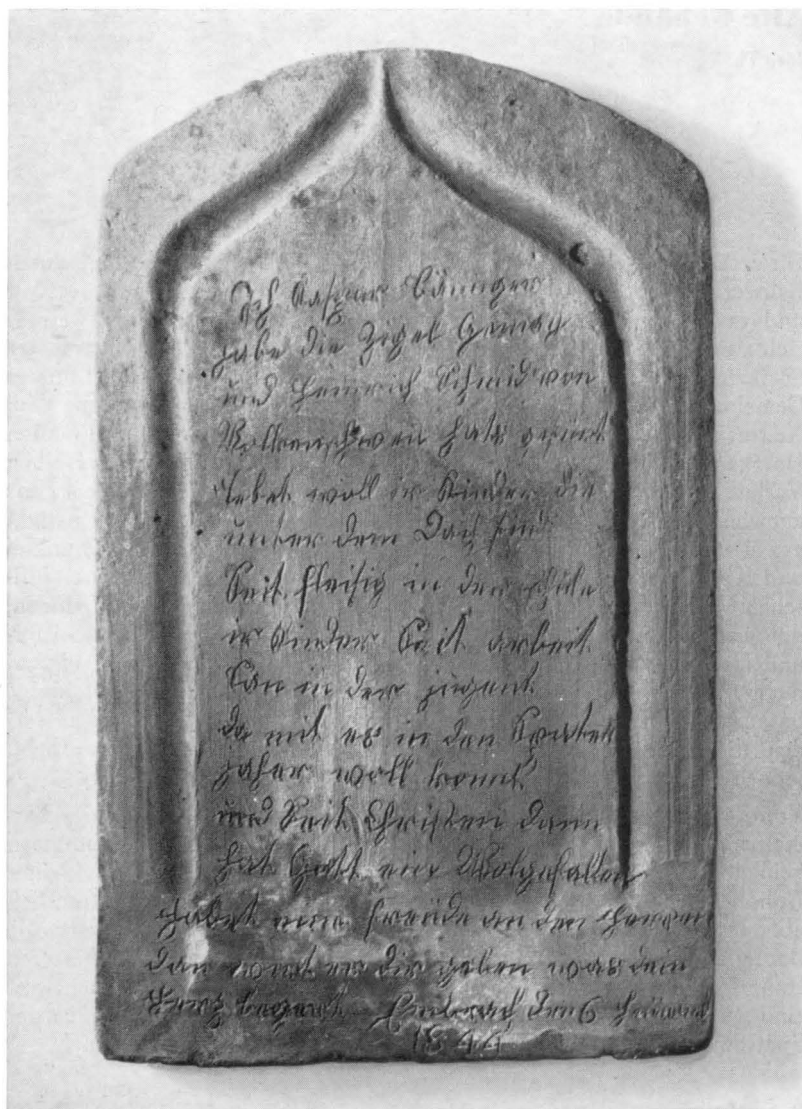 Ich Kaspar Bänniger
habe die Zigel Gemach
und Heinrich Schmid von
Volkenschwen hats gefürt
Lebet woll ir Kinder die
unter dem Dach sind
Seit fleisig in der schule
ir Kinder Seit arbeit
San in der jugent
da mit es in den Spaten
jaher woll komt
und Seit Christen dann
hat Gott ein Wolgefallen
Habet eure freüde an den Herren
dan wirt er dir geben was dein
Herz begert Embrach den 6 Heümo
1844